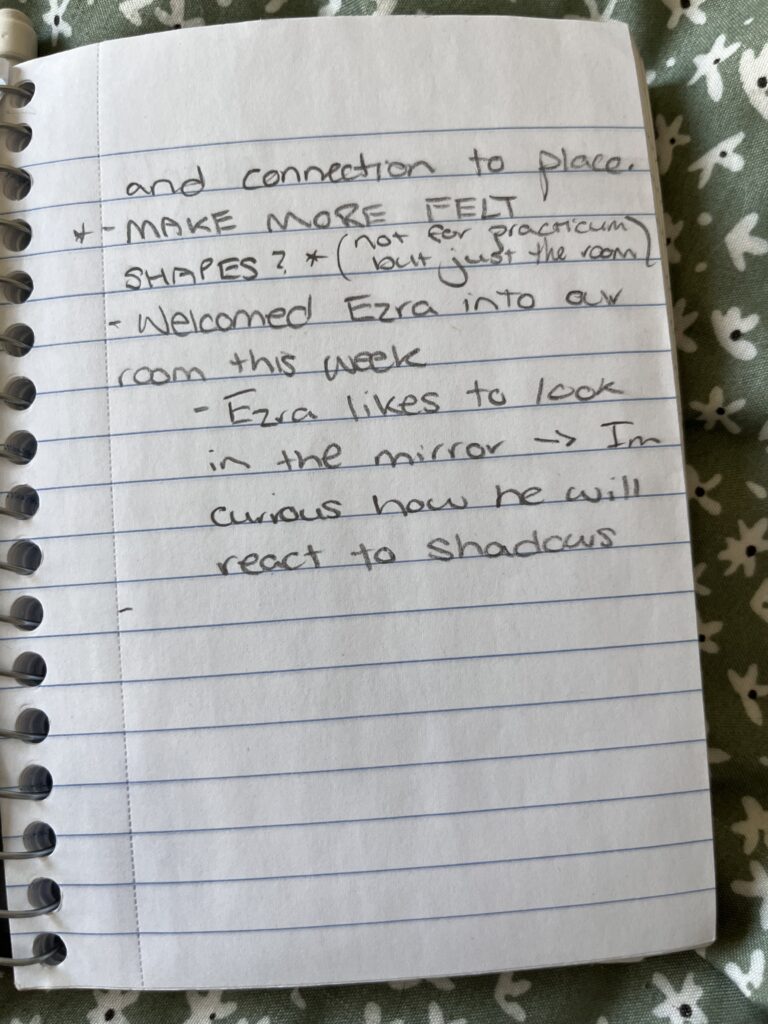 and connection to place.
* - MAKE MORE FELT
SHAPES? * (not for practicum
but just the room)
- Welcomed Ezra into our
room this week
- Ezra likes to look
in the mirror -> Im
curious how he will
react to shadows
-